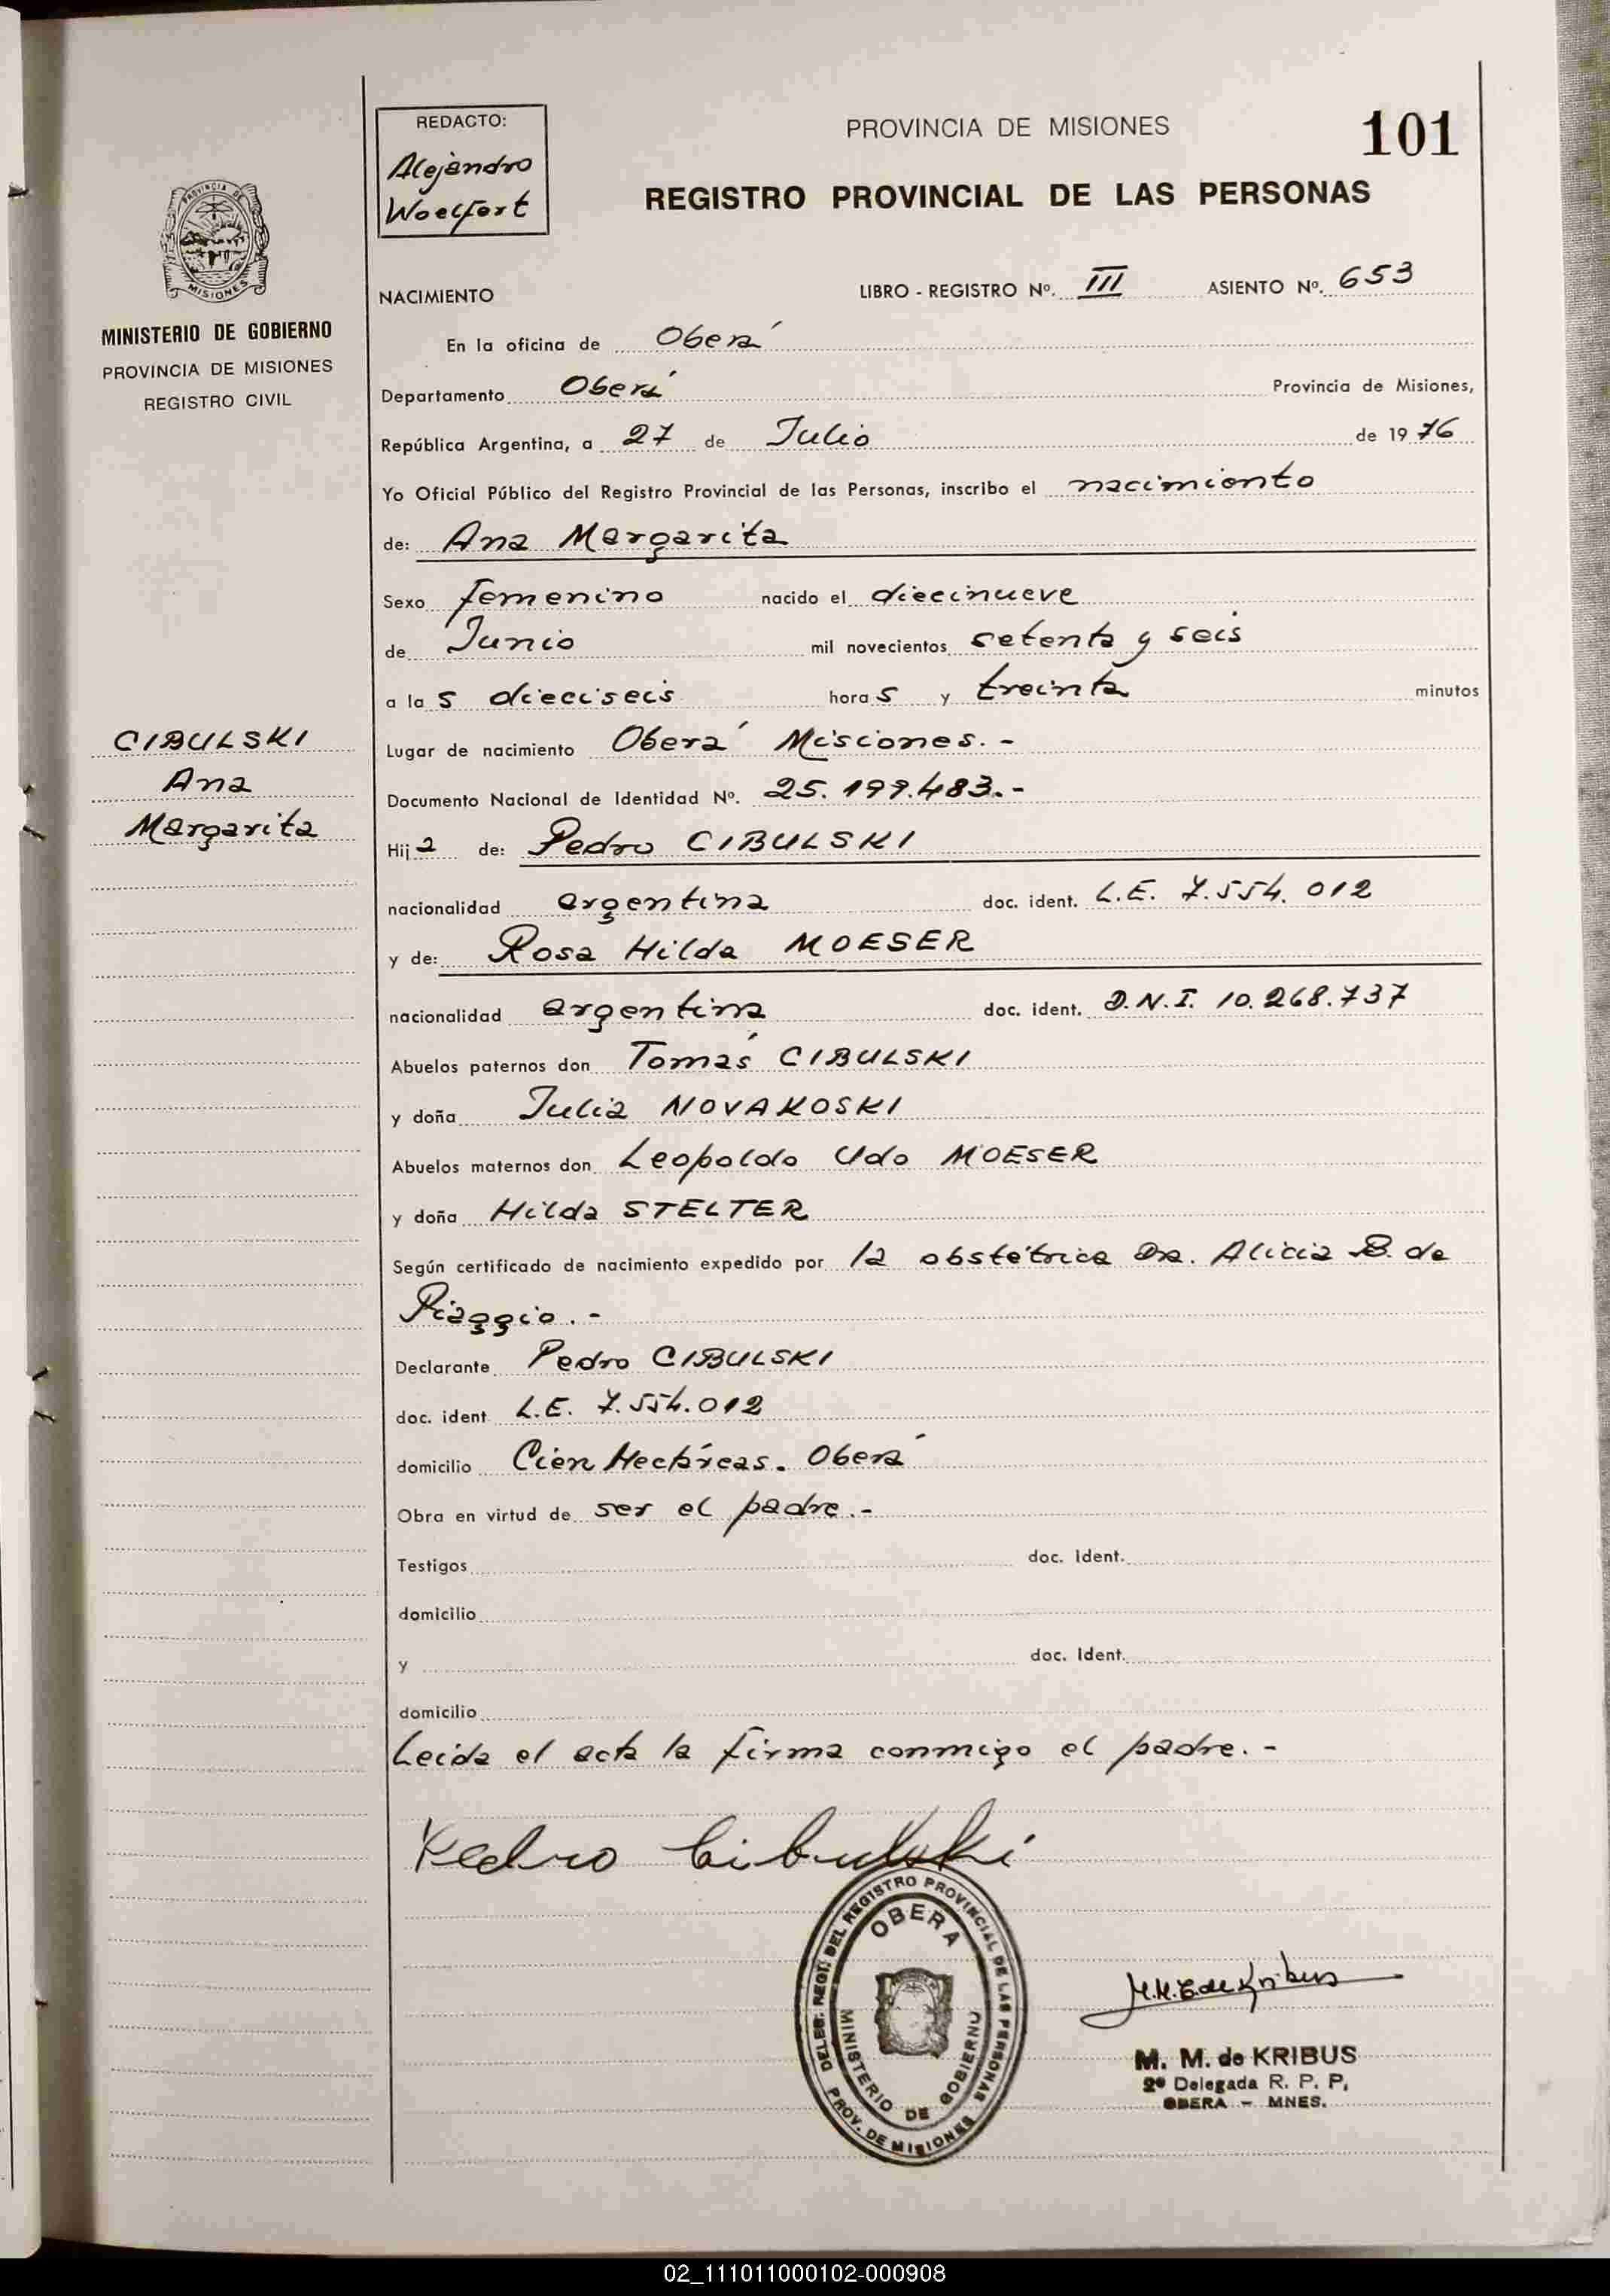 REDACTO:
Alejandro
Woelfert
PROVINCIA DE MISIONES
101
REGISTRO PROVINCIAL DE LAS PERSONAS
PROVINCIA DE
MISIONES
MINISTERIO DE GOBIERNO
PROVINCIA DE MISIONES
REGISTRO CIVIL
NACIMIENTO LIBRO - REGISTRO Nº. III ASIENTO Nº. 653
En la oficina de Oberá
Departamento Oberá Provincia de Misiones,
República Argentina, a 27 de Julio de 1976
Yo Oficial Público del Registro Provincial de las Personas, inscribo el nacimiento
de: Ana Margarita
Sexo femenino nacido el diecinueve
de Junio mil novecientos setenta y seis
a la s dieciseis hora s y treinta minutos
CIBULSKI
Ana
Margarita
Lugar de nacimiento Oberá Misiones. -
Documento Nacional de Identidad Nº. 25.199.483.-
Hij a de: Pedro CIBULSKI
nacionalidad argentina doc. ident. L.E. 7.554.012
y de: Rosa Hilda MOESER
nacionalidad argentina doc. ident. D.N.I. 10.268.737
Abuelos paternos don Tomás CIBULSKI
y doña Julia NOVAKOSKI
Abuelos maternos don Leopoldo Udo MOESER
y doña Hilda STELTER
Según certificado de nacimiento expedido por la obstétrica Dra. Alicia B. de
Piaggio. -
Declarante Pedro CIBULSKI
doc. ident L.E. 7.554.012
domicilio Cien Hectáreas. Oberá
Obra en virtud de ser el padre.-
Testigos doc. Ident.
domicilio
y doc. Ident.
domicilio
Leida el acta la firma conmigo el padre. -
Pedro Cibulski
DELEG. REGI. DEL REGISTRO PROVINCIAL DE LAS PERSONAS
OBERA
MINISTERIO DE GOBIERNO
PROV. DE MISIONES
M.M.E. de Kribus
M. M. de KRIBUS
2º Delegada R. P. P,
OBERA - MNES.
02_111011000102-000908